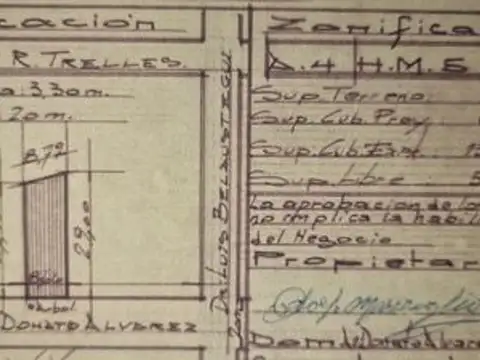 cación
R. TRELLES.
a: 3,30m.
20m.
8,72
árbol
DONATO ALVAREZ
Dr. LUIS BELAUSTEGUI
Zonifica
A.4 H.M.5
Sup. Terreno
Sup. Cub. Proy.
Sup. Cub. Exis.
Sup. Libre
La aprobacion de lo
no implica la habil
del Negocio
Propietar
Dom. Donato Alvare